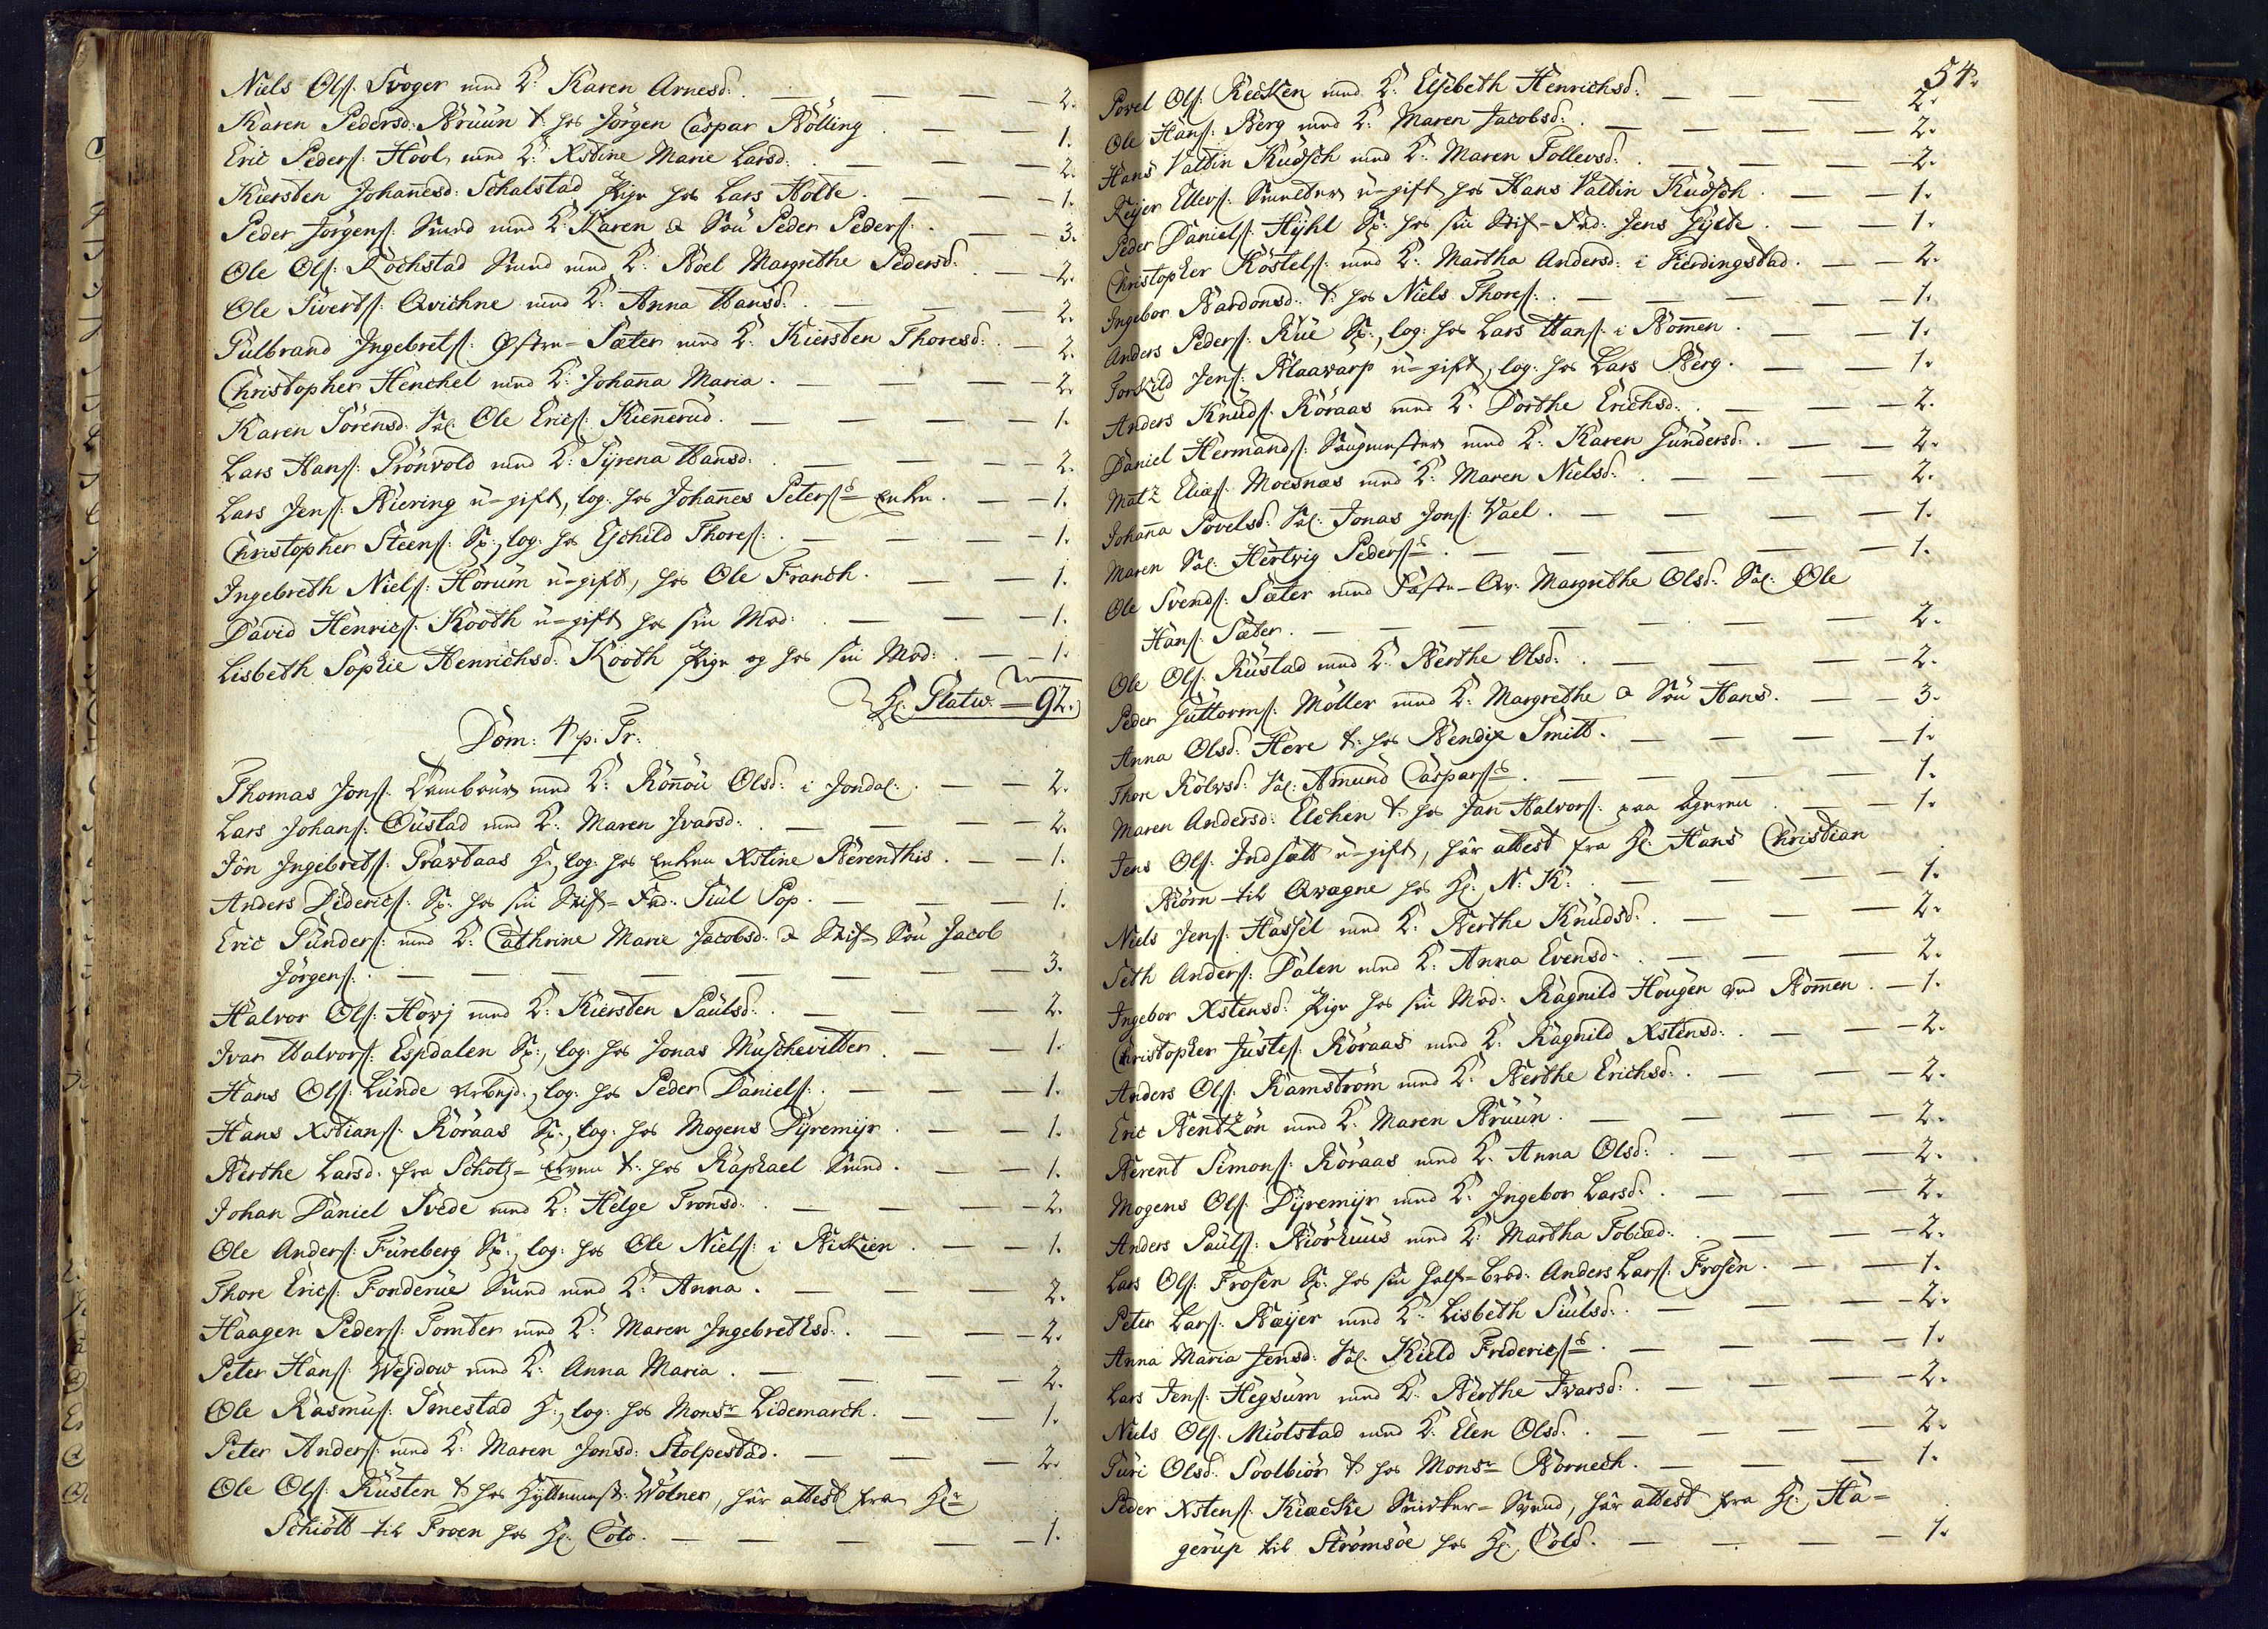 Niels Olss: Svoger med K: Karen Arnesd: — 2.
Karen Pedersd: Bruun t: hos Jørgen Caspar Bölling — 1.
Eric Pederss: Hool med K: Xstine Marie Larsd: — 2.
Kiersten Johañesd: Schalstad Pige hos Lars Holte — 1.
Peder Jørgenss: Smed med K: Karen & Sön Peder Pederss: — 3.
Ole Olss: Rochstad Smed med K: Boel Margrethe Pedersd: — 2.
Ole Siverts: Qvichne med K: Anna Hansd: — 2.
Gulbrand Ingebretss: Østre-Sæter med K: Kiersten Thoresd: — 2.
Christopher Henchel med K: Johaña Maria. — 2.
Karen Sörensd: Sal. Ole Ericss: Kieñerud. — 1.
Lars Hanss: Grönvold med K: Syrena Hansd: — 2.
Lars Jenss: Biering u-gift, log: hos Johañes Peterss Enke. — 1.
Christopher Steenss: Sp:, log: hos Eschild Thoress: — 1.
Ingebreth Nielss: Horum u-gift, hos Ole Franch. — 1.
David Henricss: Kooth u-gift hos sin Mod: — 1.
Lisbeth Sophie Henrichsd: Kooth Pige og hos sin Mod: — 1.
Hr: Glatw. — 92.
Dom: 4 p: Tr:
Thomas Jonss: Tambour med K: Röñou Olsd: i Jondal. — 2.
Lars Johanss: Oustad med K: Maren Ivarsd: — 2.
Jön Ingebretss: Gravtaas H:, log: hos Enken Xstine Berenthis. — 1.
Anders Didericss: Sp: hos sin Stif-Fad: Siul Pop. — 1.
Eric Gunderss: med K: Cathrine Marie Jacobsd: & Stif-Sön Jacob
Jørgenss: — 3.
Halvor Olss: Hovj med K: Kiersten Paulsd: — 2.
Ivar Halvorss: Espdalen Sp:, log: hos Jonas Muschevitter. — 1.
Hans Olss: Lunde Arbejd:, log: hos Peder Danielss: — 1.
Hans Xstianss: Röraas Sp:, log: hos Mogens Dyremyr — 1.
Berthe Larsd: fra Schotz- t: hos Raphael Smed. — 1.
Johan Daniel Svede med K: Helge Tronsd: — 2.
Ole Anderss: Fureberg Sp:, log: hos Ole Nielss: i Bekien — 1.
Thore Ericss: Fonderue Smed med K: Anna. — 2.
Haagen Pederss: Tomter med K: Maren Ingebrethsd: — 2.
Peter Hanss: Wejdow med K: Anna Maria. — 2.
Ole Rasmuss: Smestad H:, log: hos Monsr Lidemarch. — 1.
Peter Anderss: med K: Maren Jonsd: Stolpestad. — 2.
Ole Olss: Rusten t: hos Hyttemest: Wölner, har attest fra Hr
Schiött til Froen hos Hr: Cold. — 1.
54.
Povel Olss: Recken med K: Elsebeth Henrichsd: — 2.
Ole Hanss: Berg med K: Maren Jacobsd: — 2.
Hans Valtin Kudsch med K: Maren Tollevsd: — 2.
Reijer Ellevss: Smelter u-gift hos Hans Valtin Kudsch — 1.
Peder Danielss: Hyhl Sp: hos sin Stif-Fad: Jens Gjete. — 1.
Christopher Köstelss: med K: Martha Andersd: i Fierdingstad. — 2.
Ingebor Bardonsd: t: hos Niels Thoress: — 1.
Anders Pederss: Rue Sp:, log: hos Lars Hanss: i Bom̃en. — 1.
Torkild Jenss: Blaavarp u-gift, log: hos Lars Berg. — 1.
Anders Knudss: Röraas med K: Dorthe Erichsd: — 2.
Daniel Hermandss: Saugmester med K: Karen Gundersd: — 2.
Matz Eliæss: Moesnæs med K: Maren Nielsd: — 2.
Johaña Povelsd: Sal: Jonas Jonss: Vael. — 1.
Maren Sal: Hertvig Pederss — 1.
Ole Svendss: Sæter med Fæste-Qv: Margrethe Olsd: Sal: Ole
Hanss: Sæter. — 2.
Ole Olss: Rustad med K: Berthe Olsd: — 2.
Peder Guttormss: Möller med K: Margrethe & Sön Hans. — 3.
Anna Olsd: Here t: hos Bendix Smitt. — 1.
Thore Rolvsd: Sal: Amund Casparss — 1.
Maren Andersd: Elchen t: hos Jan Halvorss: paa Ageren — 1.
Jens Olss: Indsæt u-gift, har attest fra Hr: Hans Christian
Biörn til Qvægne hos Hr: N: K: — 1.
Niels Jenss: Hassel med K: Berthe Knudsd: — 2.
Seth Anderss: Dalen med K: Anna Evensd: — 2.
Ingebor Xstensd: Pige hos sin Mod: Ragnild Hougen ved Bom̃en. — 1.
Christopher Justess: Röraas med K: Ragnild Xstensd: — 2.
Anders Olss: Ramström med K: Berthe Erichsd: — 2.
Eric Bentzön med K: Maren Bruun. — 2.
Berent Simonss: Röraas med K: Anna Olsd: — 2.
Mogens Olss: Dyremyr med K: Ingebor Larsd: — 2.
Anders Paulss: Biörhuus med K: Martha Tobiæd: — 2.
Lars Olss: Frosen Sp: hos sin Half-Brod: Anders Larss: Frosen. — 1.
Peter Larss: Bæyer med K: Lisbeth Siulsd: — 2.
Anna Maria Jensd: Sal: Kield Fridericss — 1.
Lars Jenss: Hegsum med K: Berthe Ivarsd: — 2.
Niels Olss: Miölstad med K: Elen Olsd: — 2.
Guri Olsd: Soolbiör t: hos Monsr Bornech. — 1.
Peder Xstenss: Kiæcke Snidker-Svend, har attest fra Hr: Ha-
gerup til Strömsöe hos Hr: Cold. — 1.